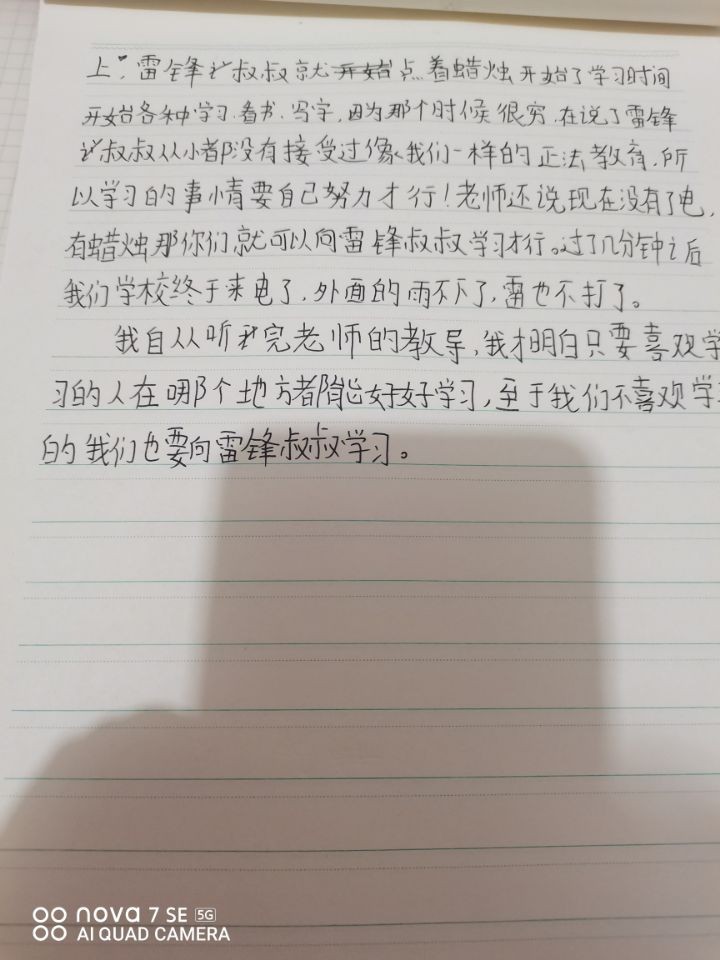 上，雷锋叔叔就开始点着蜡烛开始了学习时间
开始各种学习.看书.写字,因为那个时候很穷.在说了雷锋
叔叔从小都没有接受过像我们一样的正法教育.所
以学习的事情要自己努力才行！老师还说现在没有了电，
有蜡烛那你们就可以向雷锋叔叔学习才行。过了几分钟之后
我们学校终于来电了，外面的雨不下了，雷也不打了。
我自从听完老师的教导，我才明白只要喜欢学
习的人在哪个地方都能好好学习，至于我们不喜欢学习
的我们也要向雷锋叔叔学习。
nova 7 SE 5G
AI QUAD CAMERA